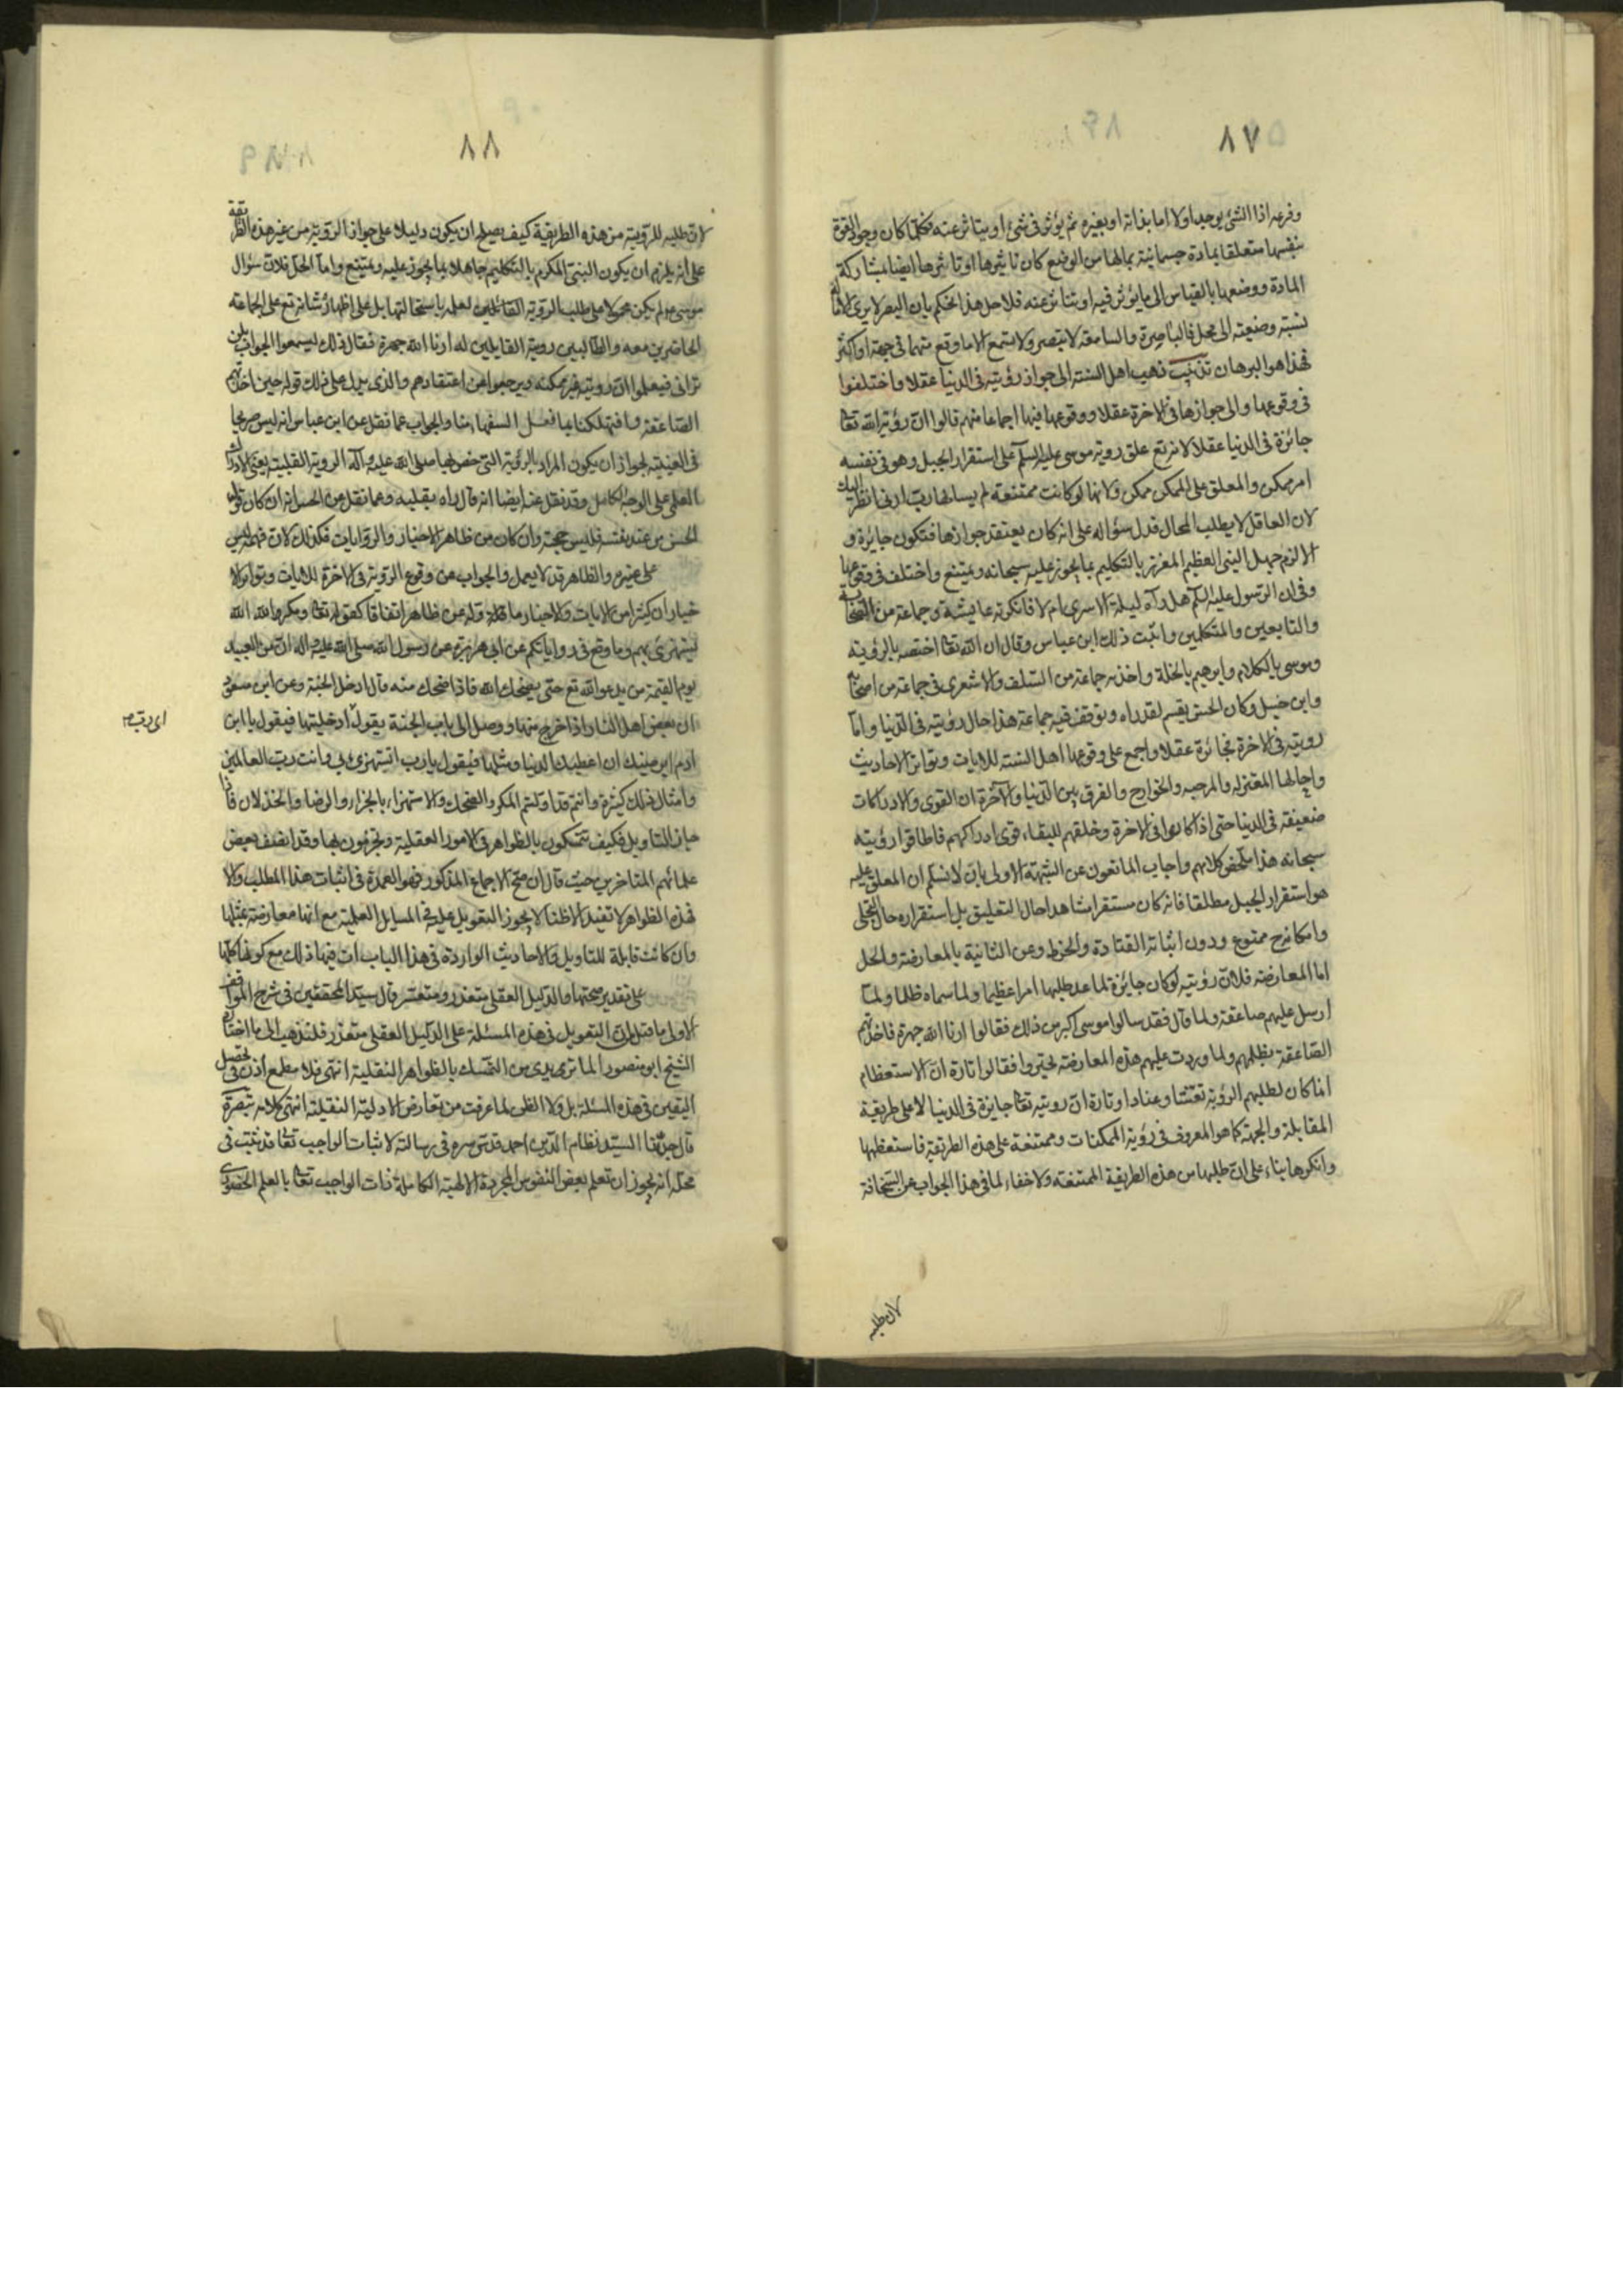 ٨٧
وفرعه اذا الشئ يوجد اولا اما بذاته او بغيره ثم يؤثر فى شئ او يتاثر عنه فكلما كان وجود القوة
بنفسها متعلقا بمادة جسمانية بمالها من الوضع كان تاثيرها او تاثرها ايضا بمشاركة
المادة ووضعها بالقياس الى ما يؤثر فيه او يتاثر عنه فلاجل هذا نحكم بان البصر لا يرى الا ماله
نسبة وضعية الى محل فالباصرة والسامعة لا تبصر ولا تسمع الا ما وقع منهما فى جهة او اكثر
فهذا هو البرهان تذنيب ذهب اهل السنة الى جواز رؤيته فى الدنيا عقلا واختلفوا
فى وقوعها والى جوازها فى الاخرة عقلا ووقوعها فيها اجماعا منهم قالوا ان رؤية الله تعا
جائزة فى الدنيا عقلا لانه تع علق روية موسى عليه السلم على استقرار الجبل وهو فى نفسه
امر ممكن والمعلق على الممكن ممكن ولانها لو كانت ممتنعة لم يسالها ربه ارنى انظر اليك
لان العاقل لا يطلب المحال فدل سؤاله على انه كان يعتقد جوازها فتكون جايزة و
الا لزم جهل النبى العظيم المعزز بالتكليم بما يجوز عليه سبحانه ويمتنع واختلف فى وقوعها
وفى ان الرسول عليه السلم هل رآه ليلة الاسرى ام لا فانكرته عايشة وجماعة من الصحابة
والتابعين والمتكلمين واثبت ذلك ابن عباس وقال ان الله تعا اختصه بالرؤية
وموسى بالكلام وابرهيم بالخلة واخذ به جماعة من السلف والاشعرى فى جماعة من اصحابه
وابن حنبل وكان الحسن يقسم لقد راه وتوقف فيه جماعة هذا حال رؤيته فى الدنيا واما
رويته فى الاخرة فجائزة عقلا واجمع على وقوعها اهل السنة للايات وتواتر الاحاديث
واحالها المعتزلة والمرجيه والخوارج والفرق بين الدنيا والآخرة ان القوى والادراكات
ضعيفة فى الدنيا حتى اذا كانوا فى الاخرة وخلقهم للبقاء قوى ادراكهم فاطاقوا رؤيته
سبحانه هذا ملخص كلامهم واجاب المانعون عن الشبهة الاولى بان لا نسلم ان المعلق عليه
هو استقرار الجبل مطلقا فانه كان مستقرا مشاهدا حال التعليق بل استقراره حال التجلى
وامكانه ح ممنوع ودون اثباته القتادة والخرط وعن الثانية بالمعارضة والحل
اما المعارضة فلان رؤيته لو كان جايزة لما عد طلبها امرا عظيما ولما سماه ظلما ولما
ارسل عليهم صاعقة ولما قال فقد سالوا موسى اكبر من ذلك فقالوا ارنا الله جهرة فاخذتهم
الصاعقة بظلمهم ولما وردت عليهم هذه المعارضة تحيروا فقالوا تارة ان الاستعظام
انما كان لطلبهم الرؤية تعنتا وعنادا وتارة ان رويته تعا جايزة فى الدنيا لا على طريقة
المقابلة والجهة كما هو المعروف فى رؤية الممكنات وممتنعة على هذه الطريقة فاستعظمها
وانكرها بناء على ان طلبها من هذه الطريقة الممتنعة ولا خفاء لما فى هذا الجواب من السخافة
لان طلبه
٨٨
لان طلبه للرؤية من هذه الطريقة كيف يصلح ان يكون دليلا على جواز الروية من غير هذه الطريقة
على انه يلزم ان يكون النبى المكرم بالتكليم جاهلا بما يجوز عليه ويمتنع واما الحل فلان سؤال
موسى لم يكن محمولا على طلب الروية لعلمه باستحالتها بل على اظهار شانه تع على الجماعة
الحاضرين معه والطالبين روية القايلين له ارنا الله جهرة فقال ذلك ليسمعوا الجواب بلن
ترانى فيعلموا ان رويته غير ممكنة ويرجعوا عن اعتقادهم والذى يدل على ذلك قوله حين اخذتهم
الصاعقة اتهلكنا بما فعل السفهاء منا والجواب عما نقل عن ابن عباس انه ليس صريحا
فى العينية لجواز ان يكون المراد بالرؤية التى خص بها صلى الله عليه وآله الروية القلبية يعنى الادراك
العلمى على الوجه الكامل وقد نقل عنه ايضا انه قال راه بقلبه وعما نقل عن الحسن انه ان كان قول
الحسن من عند نفسه فليس حجة وان كان من ظاهر الاخبار والروايات فكذلك لان فهمه ليس
على غيره والظاهر قد لا يعمل والجواب عن وقوع الروية فى الاخرة للايات وتواتر الا
خبار ان كثيرا من الايات والاخبار عن ظاهر اتفاقا كقوله تعا ومكر الله الله
يستهزئ بهم وما وقع فى رواياتكم عن ابى هريرة عن رسول الله صلى الله عليه واله ان من العبيد
يوم القيمة من يدعوا الله تع حتى يضحك الله فاذا ضحك منه قال ادخل الجنة وعن ابن مسعود
ان بعض اهل النار اذا خرج منها ووصل الى باب الجنة يقول ادخلنيها فيقول يا ابن
اى رب
ادم ايرضيك ان اعطيك الدنيا ومثلها فيقول يا رب اتستهزئ بى وانت رب العالمين
وامثال ذلك كثيرة وانتم قد اولتم المكر والضحك والاستهزاء بالجزاء والرضا والخذلان فاذا
جاز التاويل فكيف تتمسكون بالظواهر فى الامور العقلية وتجزمون بها وقد انصف بعض
علمائهم المتاخرين حيث قال ان صح الاجماع المذكور فهو العمدة فى اثبات هذا المطلب والا
فهذه الظواهر لا تفيد الا ظنا لا يجوز التعويل عليه فى المسايل العلمية مع انها معارضة بمثلها
وان كانت قابلة للتاويل والاحاديث الواردة فى هذا الباب ات فيها ذلك مع كونها كلها
على تقدير صحتها والدليل العقلى متعذر ومتعسر وقال سيد المحققين فى شرح المواقف
الاولى ما قيل ان التعويل فى هذه المسئلة على الدليل العقلى متعذر فلنذهب الى ما اختاره
الشيخ ابو منصور الماتريدى من التمسك بالظواهر النقلية انتهى فلا مطمع اذن فى تحصيل
اليقين فى هذه المسئلة بل ولا الظن لما عرفت من تعارض الادلة النقلية انتهى كلامه تبصرة
قال جدنا السيد نظام الدين احمد قدس سره فى رسالة لاثبات الواجب تعا قد ثبت فى
محله انه يجوز ان تعلم بعض النفوس المجردة الالهية الكاملة ذات الواجب تعا بالعلم الحضورى